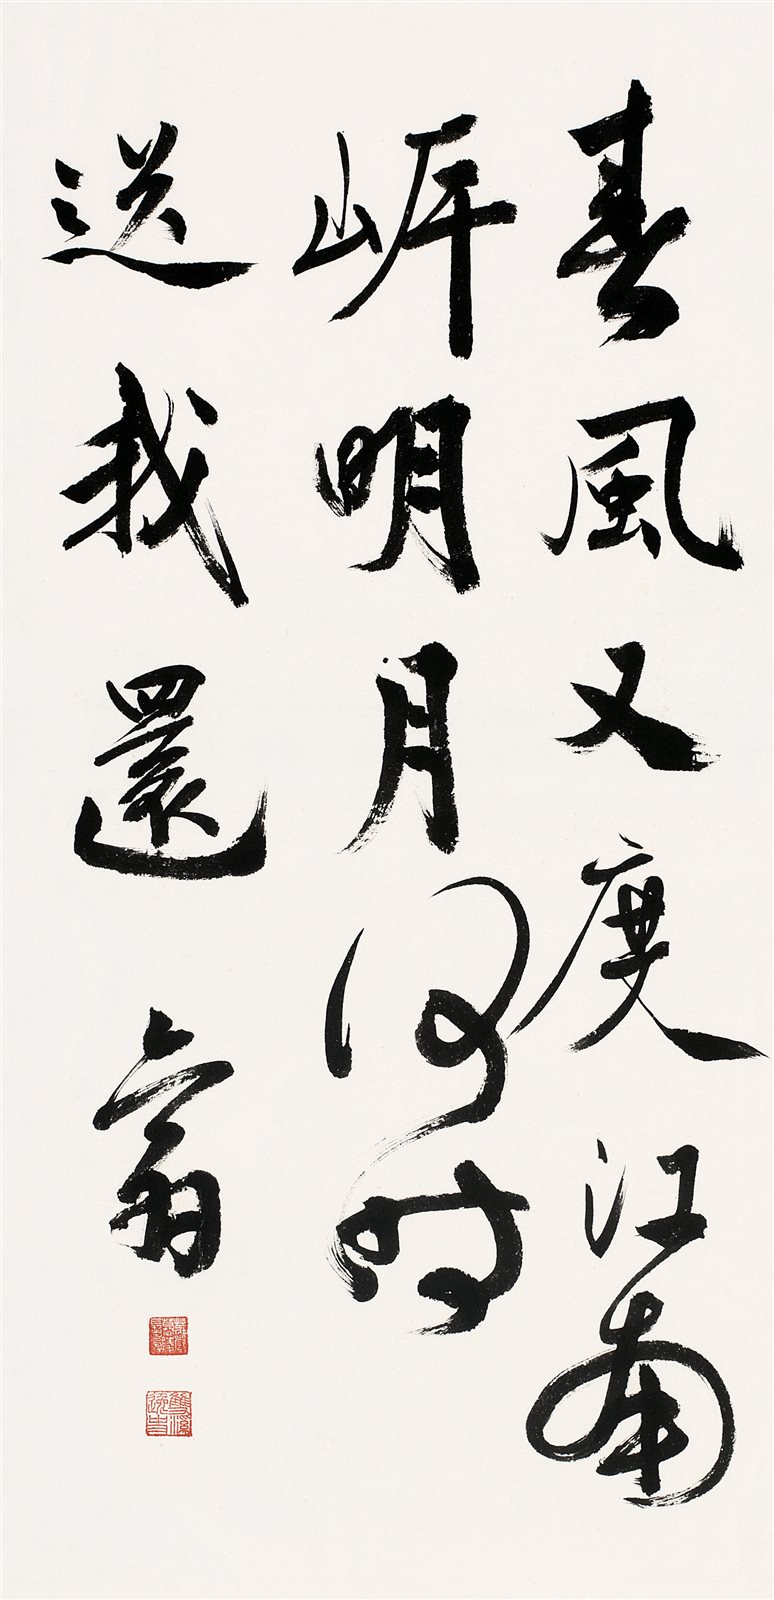 春風又度江南
岸明月何時
送我還